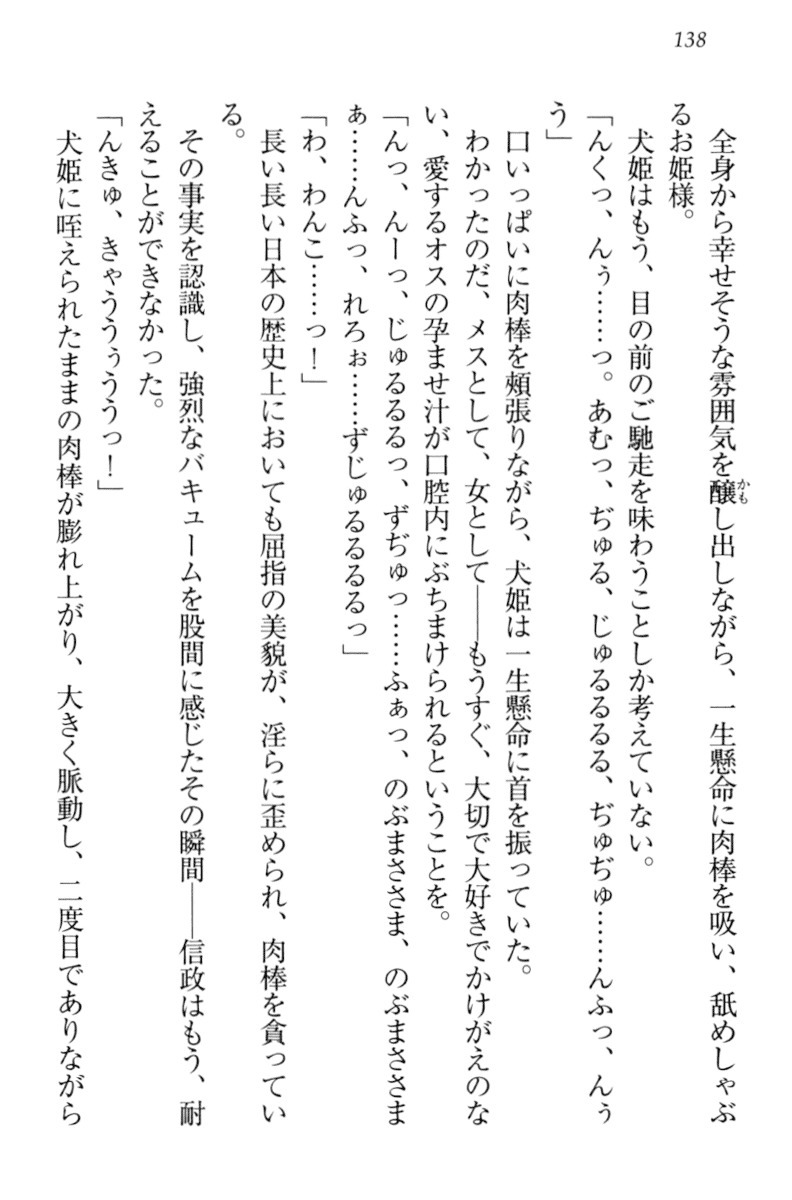 138
全身から幸せそうな雰囲気を醸し出しながら、一生懸命に肉棒を吸い、舐めしゃぶ
るお姫様。
犬姫はもう、目の前のご馳走を味わうことしか考えていない。
「んくっ、んぅ……っ。あむっ、ぢゅる、じゅるるるる、ぢゅぢゅ……んふっ、んぅ
う」
口いっぱいに肉棒を頬張りながら、犬姫は一生懸命に首を振っていた。
わかったのだ、メスとして、女として――もうすぐ、大切で大好きでかけがえのな
い、愛するオスの孕ませ汁が口腔内にぶちまけられるということを。
「んっ、んーっ、じゅるるるっ、ずぢゅっ……ふぁっ、のぶまささま、のぶまささま
ぁ……んふっ、れろぉ……ずじゅるるるるっ」
「わ、わんこ……っ！」
長い長い日本の歴史上においても屈指の美貌が、淫らに歪められ、肉棒を貪ってい
る。
その事実を認識し、強烈なバキュームを股間に感じたその瞬間――信政はもう、耐
えることができなかった。
「んきゅ、きゃううぅううっ！」
犬姫に咥えられたままの肉棒が膨れ上がり、大きく脈動し、二度目でありながら